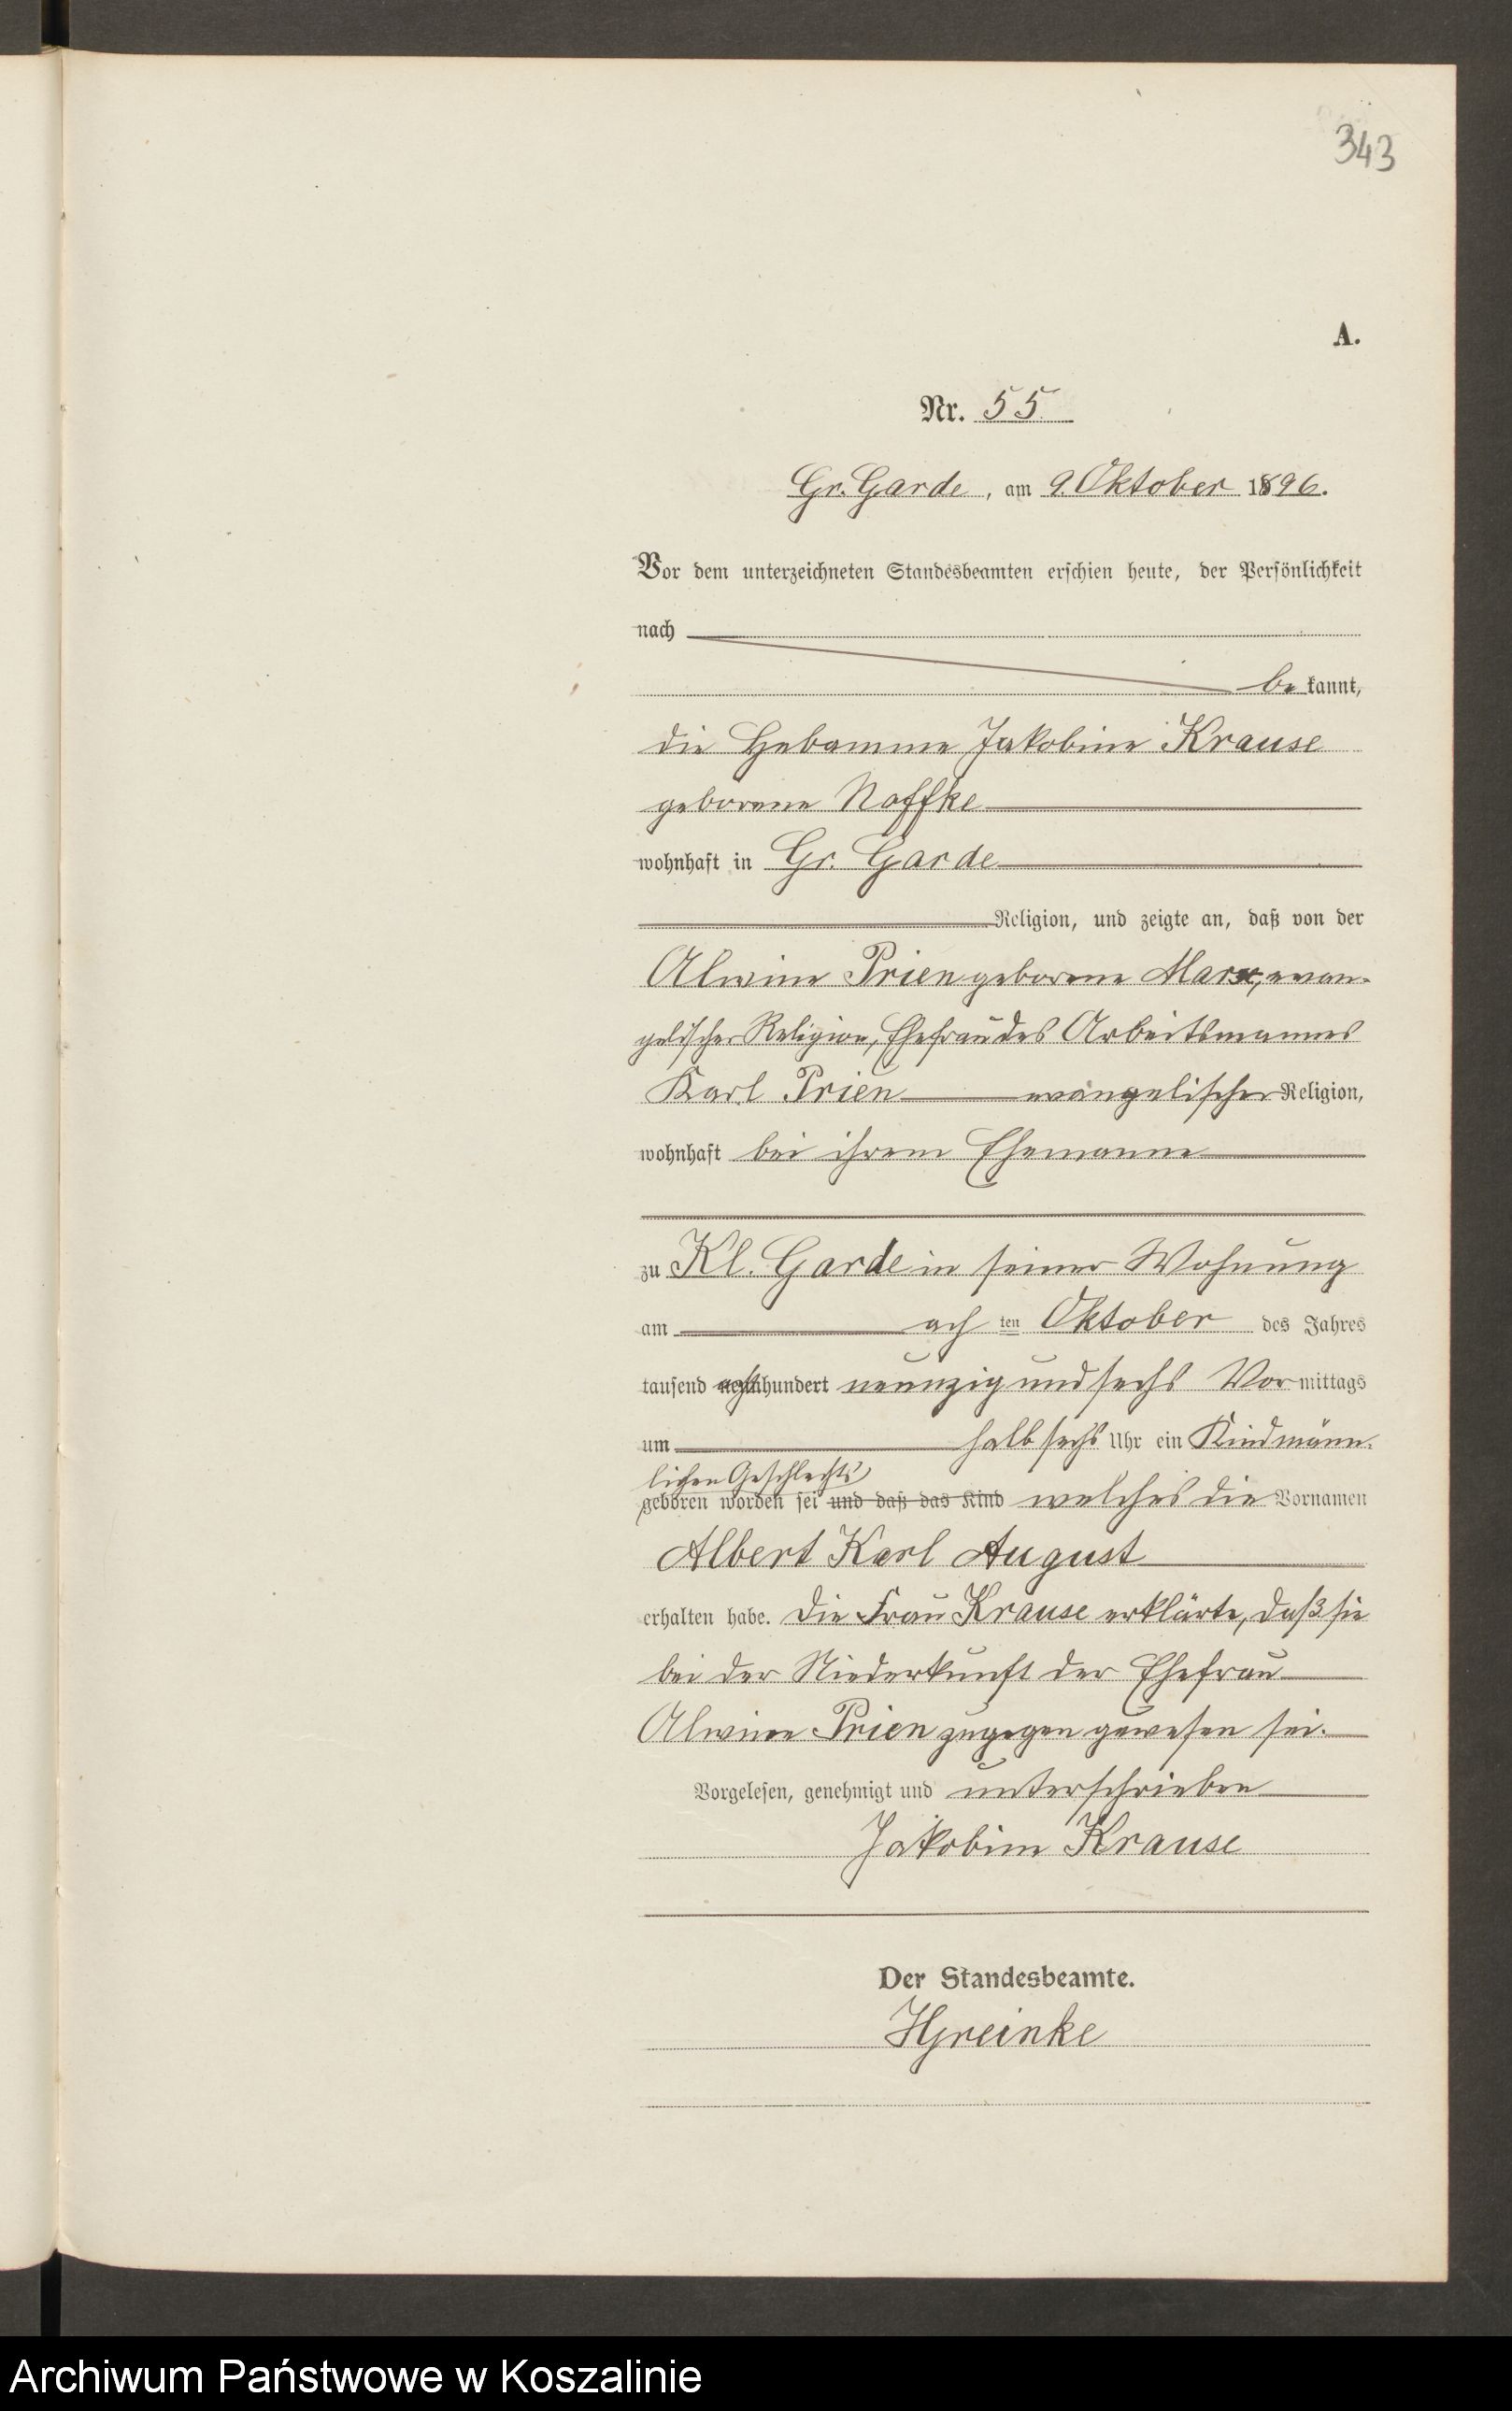 343
A.
Nr. 55.
Gr. Garde, am 9. Oktober 1896.
Vor dem unterzeichneten Standesbeamten erschien heute, der Persönlichkeit
nach
be kannt,
die Hebamme Jakobine Krause
geborene Noffke
wohnhaft in Gr. Garde
Religion, und zeigte an, daß von der
Alwine Prien geborene Marx, evan-
gelischer Religion, Ehefrau des Arbeitsmannes
Karl Prien evangelischer Religion,
wohnhaft bei ihrem Ehemanne
zu Kl. Garde in seiner Wohnung
am ach ten Oktober des Jahres
tausend achthundert neunzig und sechs Vor mittags
um halb sechs Uhr ein Kind männ-
lichen Geschlechts
geboren worden sei und daß das Kind welches die Vornamen
Albert Karl August
erhalten habe. Die Frau Krause erklärte, daß sie
bei der Niederkunft der Ehefrau
Alwine Prien zugegen gewesen sei.
Vorgelesen, genehmigt und unterschrieben
Jakobine Krause
Der Standesbeamte.
HGreinke
Archiwum Państwowe w Koszalinie